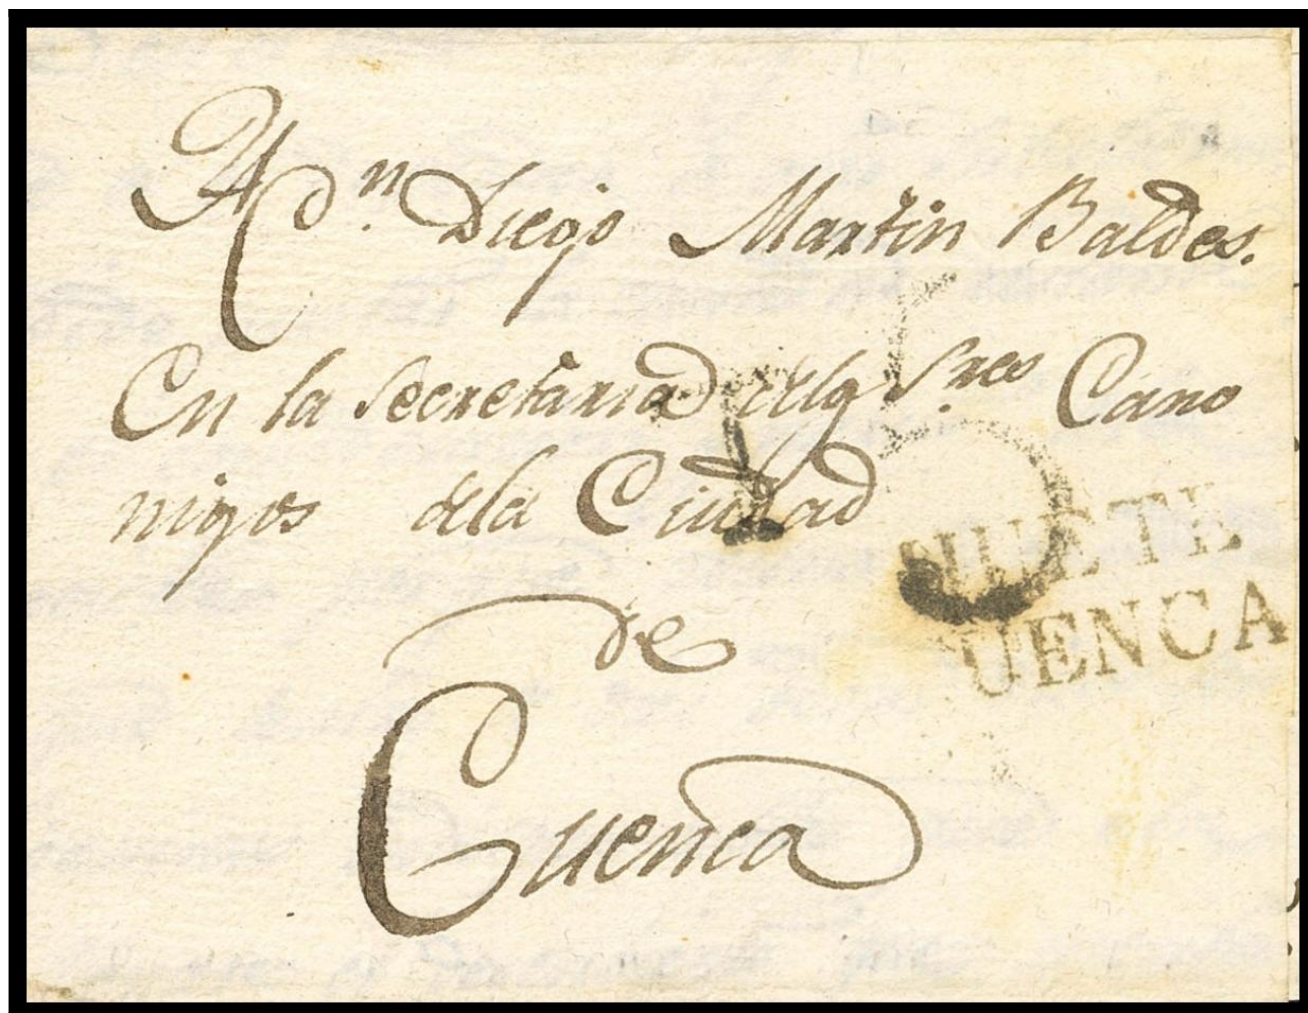 A Dn. Diego Martin Baldes.
En la Secretaria de los Sres Cano
nigos de la Ciudad
de
Cuenca
5
HUETE
UENCA